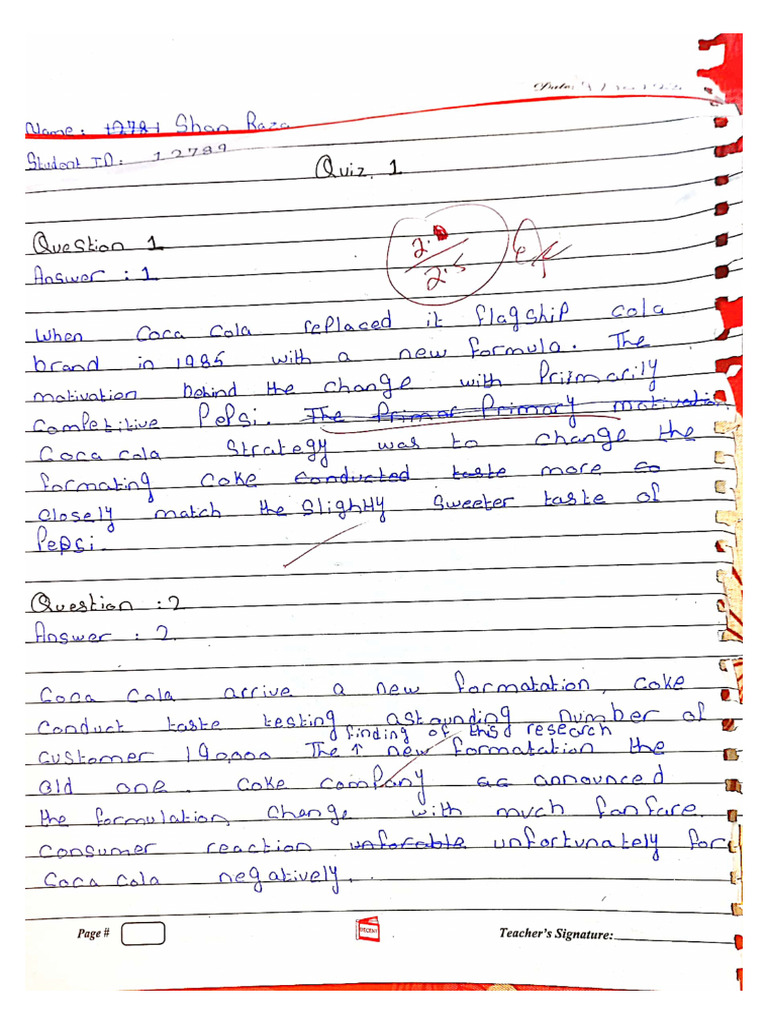 Date:
Name: 12781 Shan Raza
Student ID: 12789
Quiz. 1
Question 1
2.
2.5
Answer : 1
When Coca Cola replaced it flagship cola
brand in 1985 with a new formula. The
motivation behind the change with Primarily
Competitive Pepsi. The Primar Primary motivation
Coca cola strategy was to change the
formating coke conducted taste more so
closely match the slightly sweeter taste of
Pepsi.
Question :2
Answer : 2
Coca Cola arrive a new formatation, coke
conduct taste testing astounding number of
finding of this research
customer 190,000 The ↑ new formatation the
old one. Coke company as announced
the formulation change with much fanfare.
consumer reaction unforable unfortunately for
Coca Cola negatively.
Page #
DECENT
Teacher's Signature: